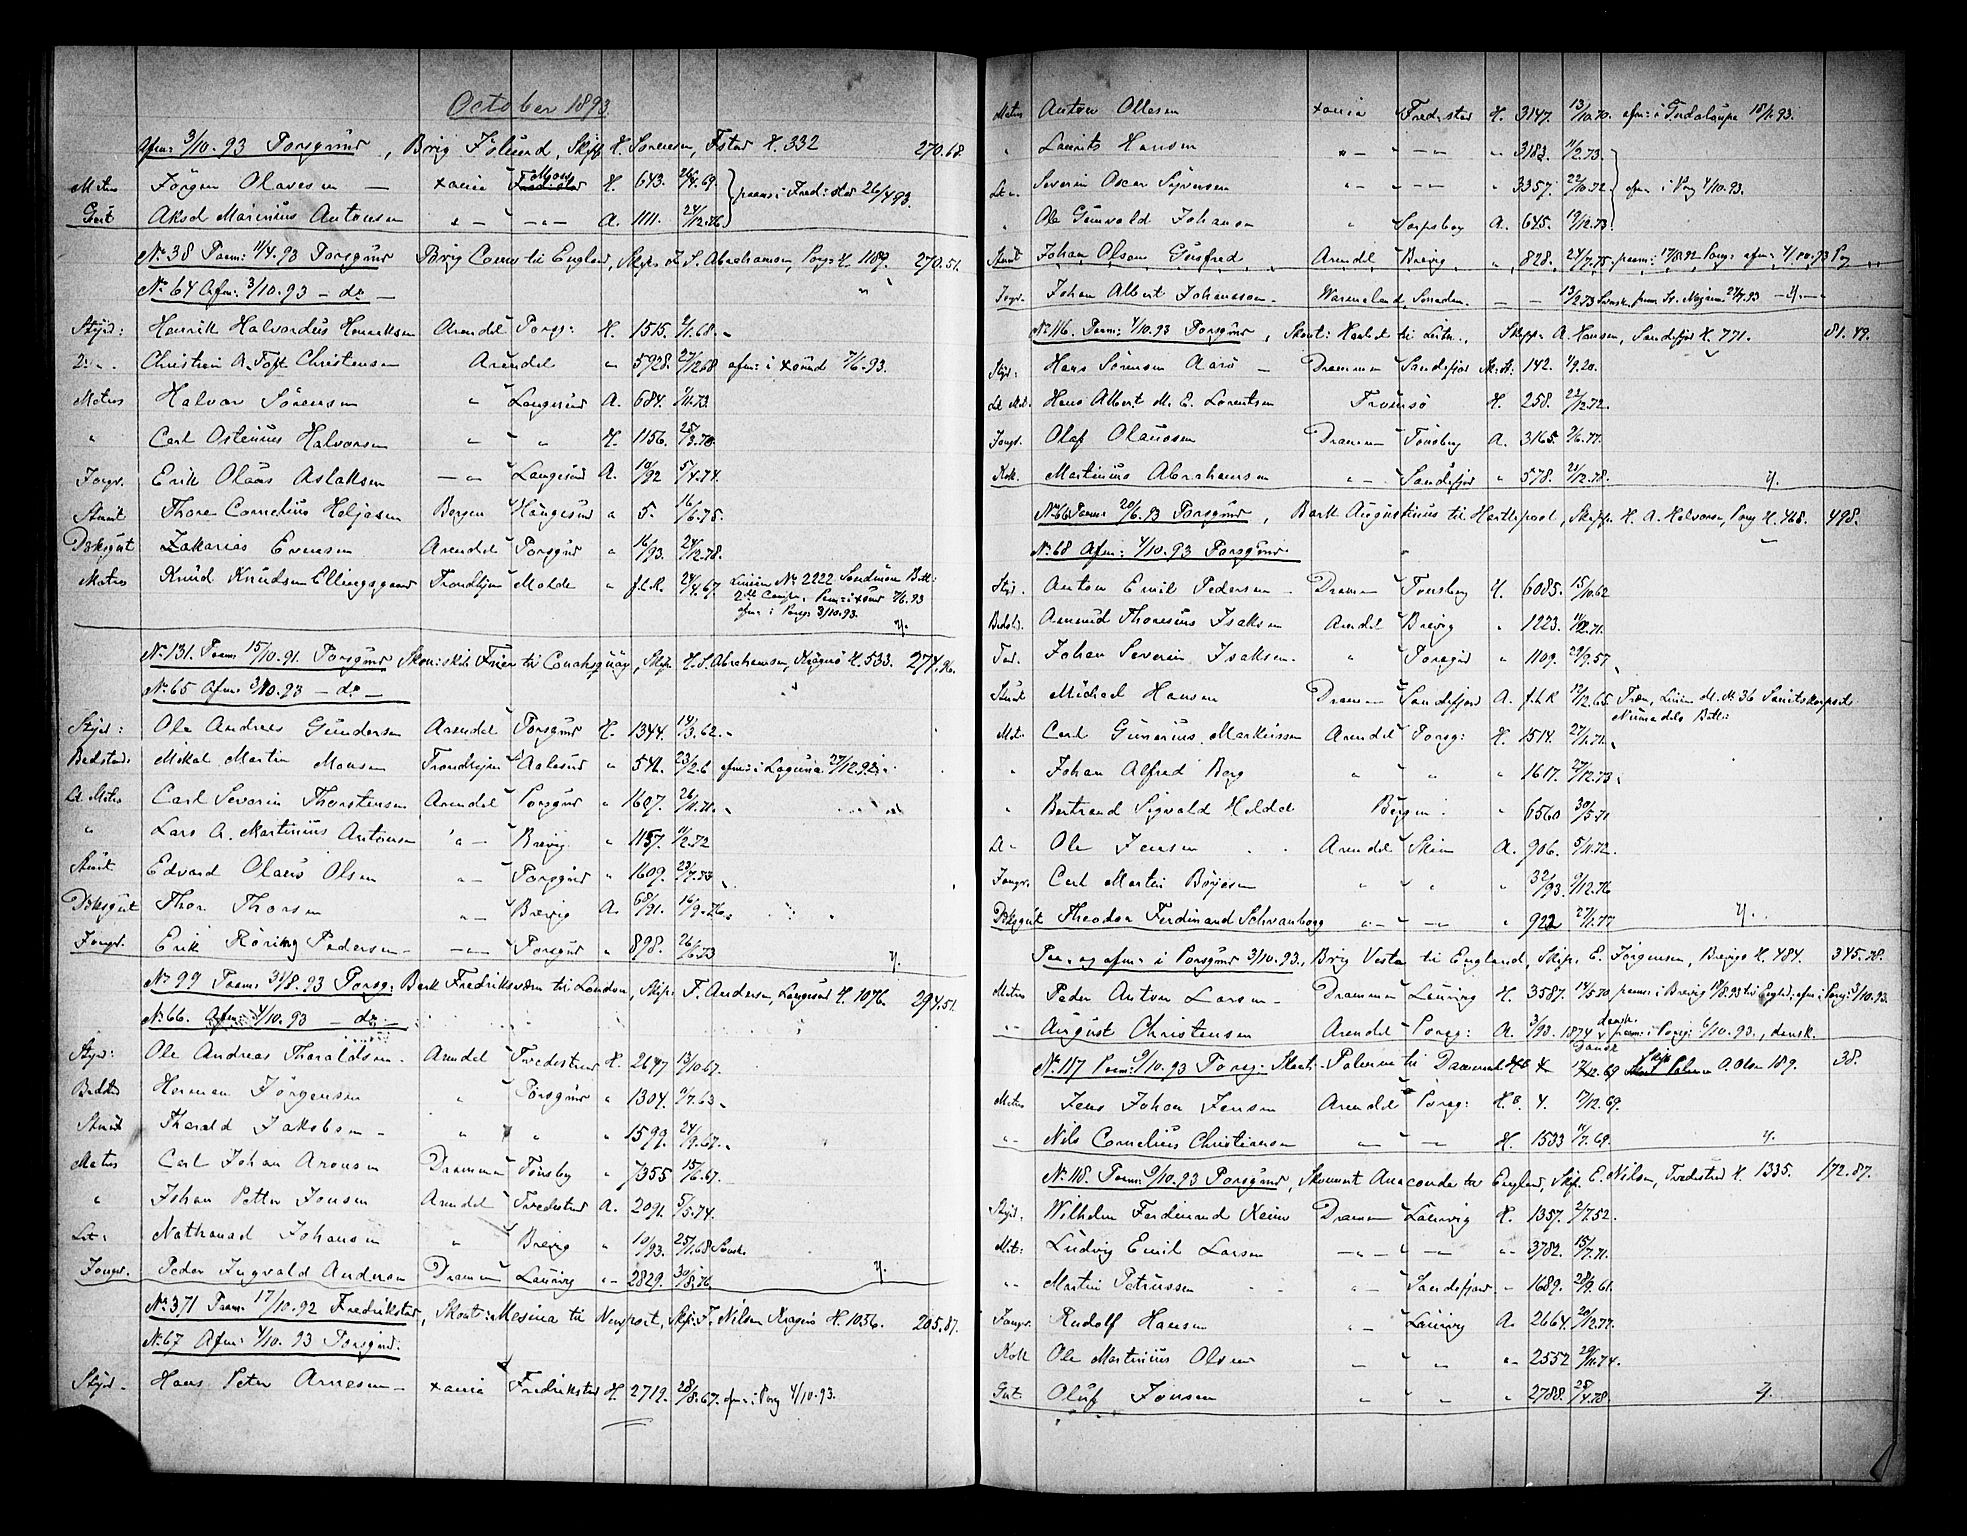 October 1893.
Afm: 3/10.93 Porsgrund, Brig Island, Skipp H. Sorensen, Fstad H. 332 270.68.
Matros Jörgen Olavesen — xania Fredrstad H. 643. 26/4.69. paam: i Fredrstad 26/4.93.
Gut Aksel Marinius Antonsen " — " — A. 1111. 24/12.76.
No. 38 Paam: 11/4.93 Porsgrund Brig Ceres til England, Skip. H. S. Abrahamsen, Porsg: H. 1189. 270.51.
No. 64 Afm: 3/10.93 — do —
Styrd: Henrik Halvordius Henriksen Arendal Porsg: H. 1515. 2/1.68.
2den. Christian A. Toft Christensen Arendal " 5928. 27/12.68 afm: i xsund 7/6.93.
Matros Halvor Sörensen " Langesund A. 684. 4/11.73.
" Carl Ostenius Halvorsen " " H. 1156. 25/3.70.
Jungm. Erik Olaus Aslaksen — " — Langesund A. 10/92 5/4.74.
Kunit Thore Cornelius Heljesen Bergen Haugesund " 5. 16/6.75.
Dæksgut Zakarias Evensen Arendal Porsgrund " 16/93. 24/12.78.
Matros Knud Knudsen Ellingsgaard Trondhjem Molde " f.l.R. 24/4.67. Linien No 2222 Söndmöre Batl:
2det Comp. Paam: i xsund 7/6.93
afm: i Porsg: 3/10.93.
No. 131. Paam: 15/10.91. Porsgrund Skonnskib Freir til Conahsquay, Skip. H. S. Abrahamsen, Kragerö H. 533. 274.96.
No. 65 Afm: 3/10.93 — do —
Styrd: Ole Andreas Gundersen Arendal Porsgrund H. 1344. 14/3.62.
Bedstmd: Mikal Martin Monsen Trondhjem Aalesund " 546. 23/2.6 afm: i Laguna 27/12.92.
Let Matros Carl Severin Thorstensen Arendal Porsgrund " 1607. 26/11.71.
" Lars A. Martinius Antonsen " — Brevig " 1157. 11/2.72
Kunit Edvard Olaus Olsen " — Porsgrund " 1609. 23/7.73
Dæksgut Thor Thorsen " — Brevig A. 68/91. 16/9.76.
Jungm. Erik Röring Pedersen — — " — Porsgrund " 898. 26/6.73
No 99 Paam: 31/8.93 Porsg: Bark Fredriksværn til London, Skip: T. Andersen, Langesund H. 1076. 294.51.
No. 66. Afm: 4/10.93 — do —
Styrd: Ole Andreas Tharaldsen. Arendal Tvedestrand H. 2647. 13/10.67.
Bedstm Herman Jörgensen " Porsgrund " 1304. 9/7.63
Kunit Tharald Jakobsen — " " " 1599. 24/9.67.
Matros Carl Johan Aronsen Drammen Tönsby " 7355 15/6.67.
" Johan Petter Jensen Arendal Tvedestrand A. 2091. 5/5.74.
Let: Nathanael Johansen " Brevig " 10/93. 25/1.68 Svensk.
Jungm. Peder Ingvald Andersen Drammen Laurvig " — 2829. 30/8.76
No. 371 Paam: 17/10.92 Fredrikstad, Skonnt: Mesina til Newport, Skip: F. Nilsen Kragerö H. 1056. 205.87.
No. 67 Afm: 4/10.93 Porsgrund.
Styrd. Hans Peter Arnesen — xania Fredrikstad H. 2719. 28/8.67. afm: i Porsg 4/10.93.
Matros Anton Ollesen xania Fredrstad H. 3147. 13/10.70. afm: i Gudaloupe 18/1.93.
" Laurits Hansen " — — " — " 3183. 11/2.73.
Let " Severin Oscar Syversen " — — " — " 3357. 22/10.72 afm: i Porsg 4/10.93.
" Ole Gunvald Johansen " Sarpsborg A. 645. 19/12.73.
Kunit Johan Olson Gusfred Arendal Brevig " 828. 24/7.75 paam: 17/8.92 Porsg: afm: 4/10.93 Porsg
Jungm. Johan Albert Johansson — Warmeland Sverden. — — 13/2.73 Svensk.
No. 116. Paam: 4/10.93 Porsgrund, Skonnt: Havlid til Leith., Skipp. A. Hansen, Sandefjord H. 771. 81.49.
Styrd: Hans Sörensen Aarö — Drammen Sandefjord 142. 4/9.20.
Let Mat. Hans Albert M. E. Lorentsen Tromsö H. 258. 22/12.72.
Jungm. Olaf Olausen Drammen Tönsberg A. 3165. 2/6.77.
Kok. Martinius Abrahamsen " — Sandefjord " 578. 21/12.78.
No. 66 Paam: 20/6.93 Porsgrund, Bark Augustinus til Hartlepool, Skipp. H. A. Halvorsen, Porsg H. 468. 498.
No. 68 Afm: 4/10.93 Porsgrund
Styrd. Anton Emil Pedersen — Drammen Tönsberg H. 6085. 15/10.62
Bedstd. Aamund Thoresius Isaksen Arendal Brevig " 1223. 11/12.71.
Johan Severin Isaksen. " Porsgrund " 1109. 29/9.57
Kunit Michael Hansen Drammen Sandefjord A. f.l.R 12/12.65 Træn, Linien M. No 36 Sanitskorpset
Numedals Batl:
Mat. Carl Gunerius Markussen Arendal Porsg: H. 1514. 27/1.71.
" Johan Alfred Berg " " " 1617. 27/12.73
" Bertrand Sigvald Heldal Bergen " 6560 30/5.71
Let Ole Jensen Arendal Skien A. 906. 5/11.72.
Jungm. Carl Martin Böjesen " " " 32/93. 9/12.76
Dæksgut Theodor Ferdinand Schvanborg " — — " — " 922 27/1.77
Paa- og afm: i Porsgrund 3/10.93., Brig Vesta til England, Skip. E. Jörgensen, Brevigs H. 484. 345.78.
Matros Peder Anton Larsen — Drammen Laurvig H. 3587. 14/5.70 paam: i Brevig 19/8.93 til Engld. afm: i Porsg: 3/10.93.
" August Christensen Arendal Porsg: A. 3/93. 1874 dansk paam: i Porsg: 6/10.93., dansk.
No. 117 Paam: 9/10.93 Porsg: Skonnt. Palerma til Danmark 17/12.69 Dansk Skip O. Olsen 189. 38.
Matros Jens Johan Jensen Arendal Porsg: H.B. 4. 17/12.69.
" Nils Cornelius Christiansen " — — H. 1533 11/7.69.
No. 118. Paam: 9/10.93 Porsgrund, Skonnert Anaconda til England, Skip. E. Nilsen, Tvedestrand H. 1335. 172.87.
Styrd. Wilhelm Ferdinand Keim Drammen Laurvig H. 1357. 2/7.52.
Mat: Ludvig Emil Larsen — " — — " — " 3782. 15/7.71.
" Martin Petrussen " — Sandefjord " 1689. 28/9.61.
Jungm. Rudolf Hansen " — Laurvig A. 2664. 20/12.77.
Kok Ole Martinius Olsen " " " 2552 29/11.74.
Gut. Oluf Jonsen " " " 2788. 25/4.78.